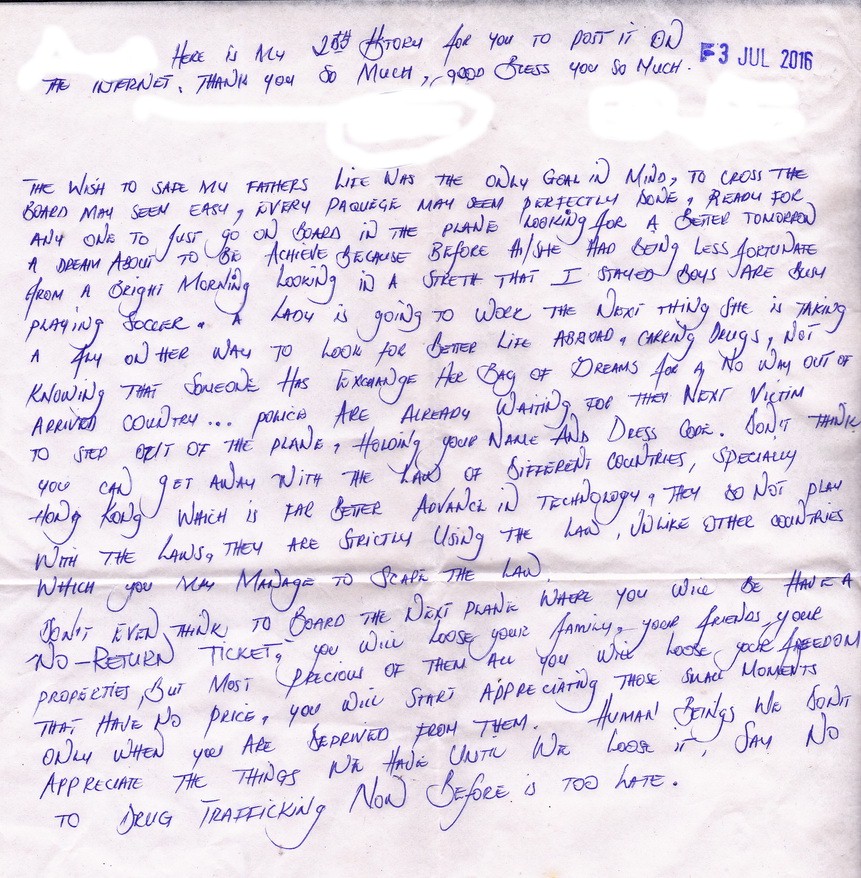 HERE IS MY 2ND HSTORY FOR YOU TO POST IT ON
THE INTERNET. THANK YOU SO MUCH, GOOD BLESS YOU SO MUCH.
3 JUL 2016
THE WISH TO SAFE MY FATHERS LIFE WAS THE ONLY GOAL IN MIND, TO CROSS THE
BOARD MAY SEEM EASY, EVERY PAQUEGE MAY SEEM PERFECTLY DONE, READY FOR
ANY ONE TO JUST GO ON BOARD IN THE PLANE LOOKING FOR A BETTER TOMORROW
A DREAM ABOUT TO BE ACHIEVE BECAUSE BEFORE H/SHE HAD BEING LESS FORTUNATE
FROM A BRIGHT MORNING LOOKING IN A STRETH THAT I STAYED BOYS ARE BUSY
PLAYING SOCCER. A LADY IS GOING TO WORK THE NEXT THING SHE IS TAKING
A FLY ON HER WAY TO LOOK FOR BETTER LIFE ABROAD, CARRING DRUGS, NOT
KNOWING THAT SOMEONE HAS EXCHANGE HER BAG OF DREAMS FOR A NO WAY OUT OF
ARRIVED COUNTRY... POLICE ARE ALREADY WAITING FOR THEY NEXT VICTIM
TO STEP OUT OF THE PLANE, HOLDING YOUR NAME AND DRESS CODE. DON'T THINK
YOU CAN GET AWAY WITH THE LAW OF DIFFERENT COUNTRIES, SPECIALLY
HONG KONG WHICH IS FAR BETTER ADVANCE IN TECHNOLOGY, THEY DO NOT PLAY
WITH THE LAWS, THEY ARE STRICTLY USING THE LAW, UNLIKE OTHER COUNTRIES
WHICH YOU MAY MANAGE TO SCAPE THE LAW.
DON'T EVEN THINK TO BOARD THE NEXT PLANE WHERE YOU WILL BE HAVE A
NO-RETURN TICKET, YOU WILL LOOSE YOUR FAMILY, YOUR FRIENDS, YOUR
PROPERTIES, BUT MOST PRECIOUS OF THEM ALL YOU WILL LOOSE YOUR FREEDOM
THAT HAVE NO PRICE, YOU WILL START APPRECIATING THOSE SMALL MOMENTS
ONLY WHEN YOU ARE DEPRIVED FROM THEM. HUMAN BEINGS WE DON'T
APPRECIATE THE THINGS WE HAVE UNTIL WE LOOSE IT, SAY NO
TO DRUG TRAFFICKING NOW BEFORE IS TOO LATE.